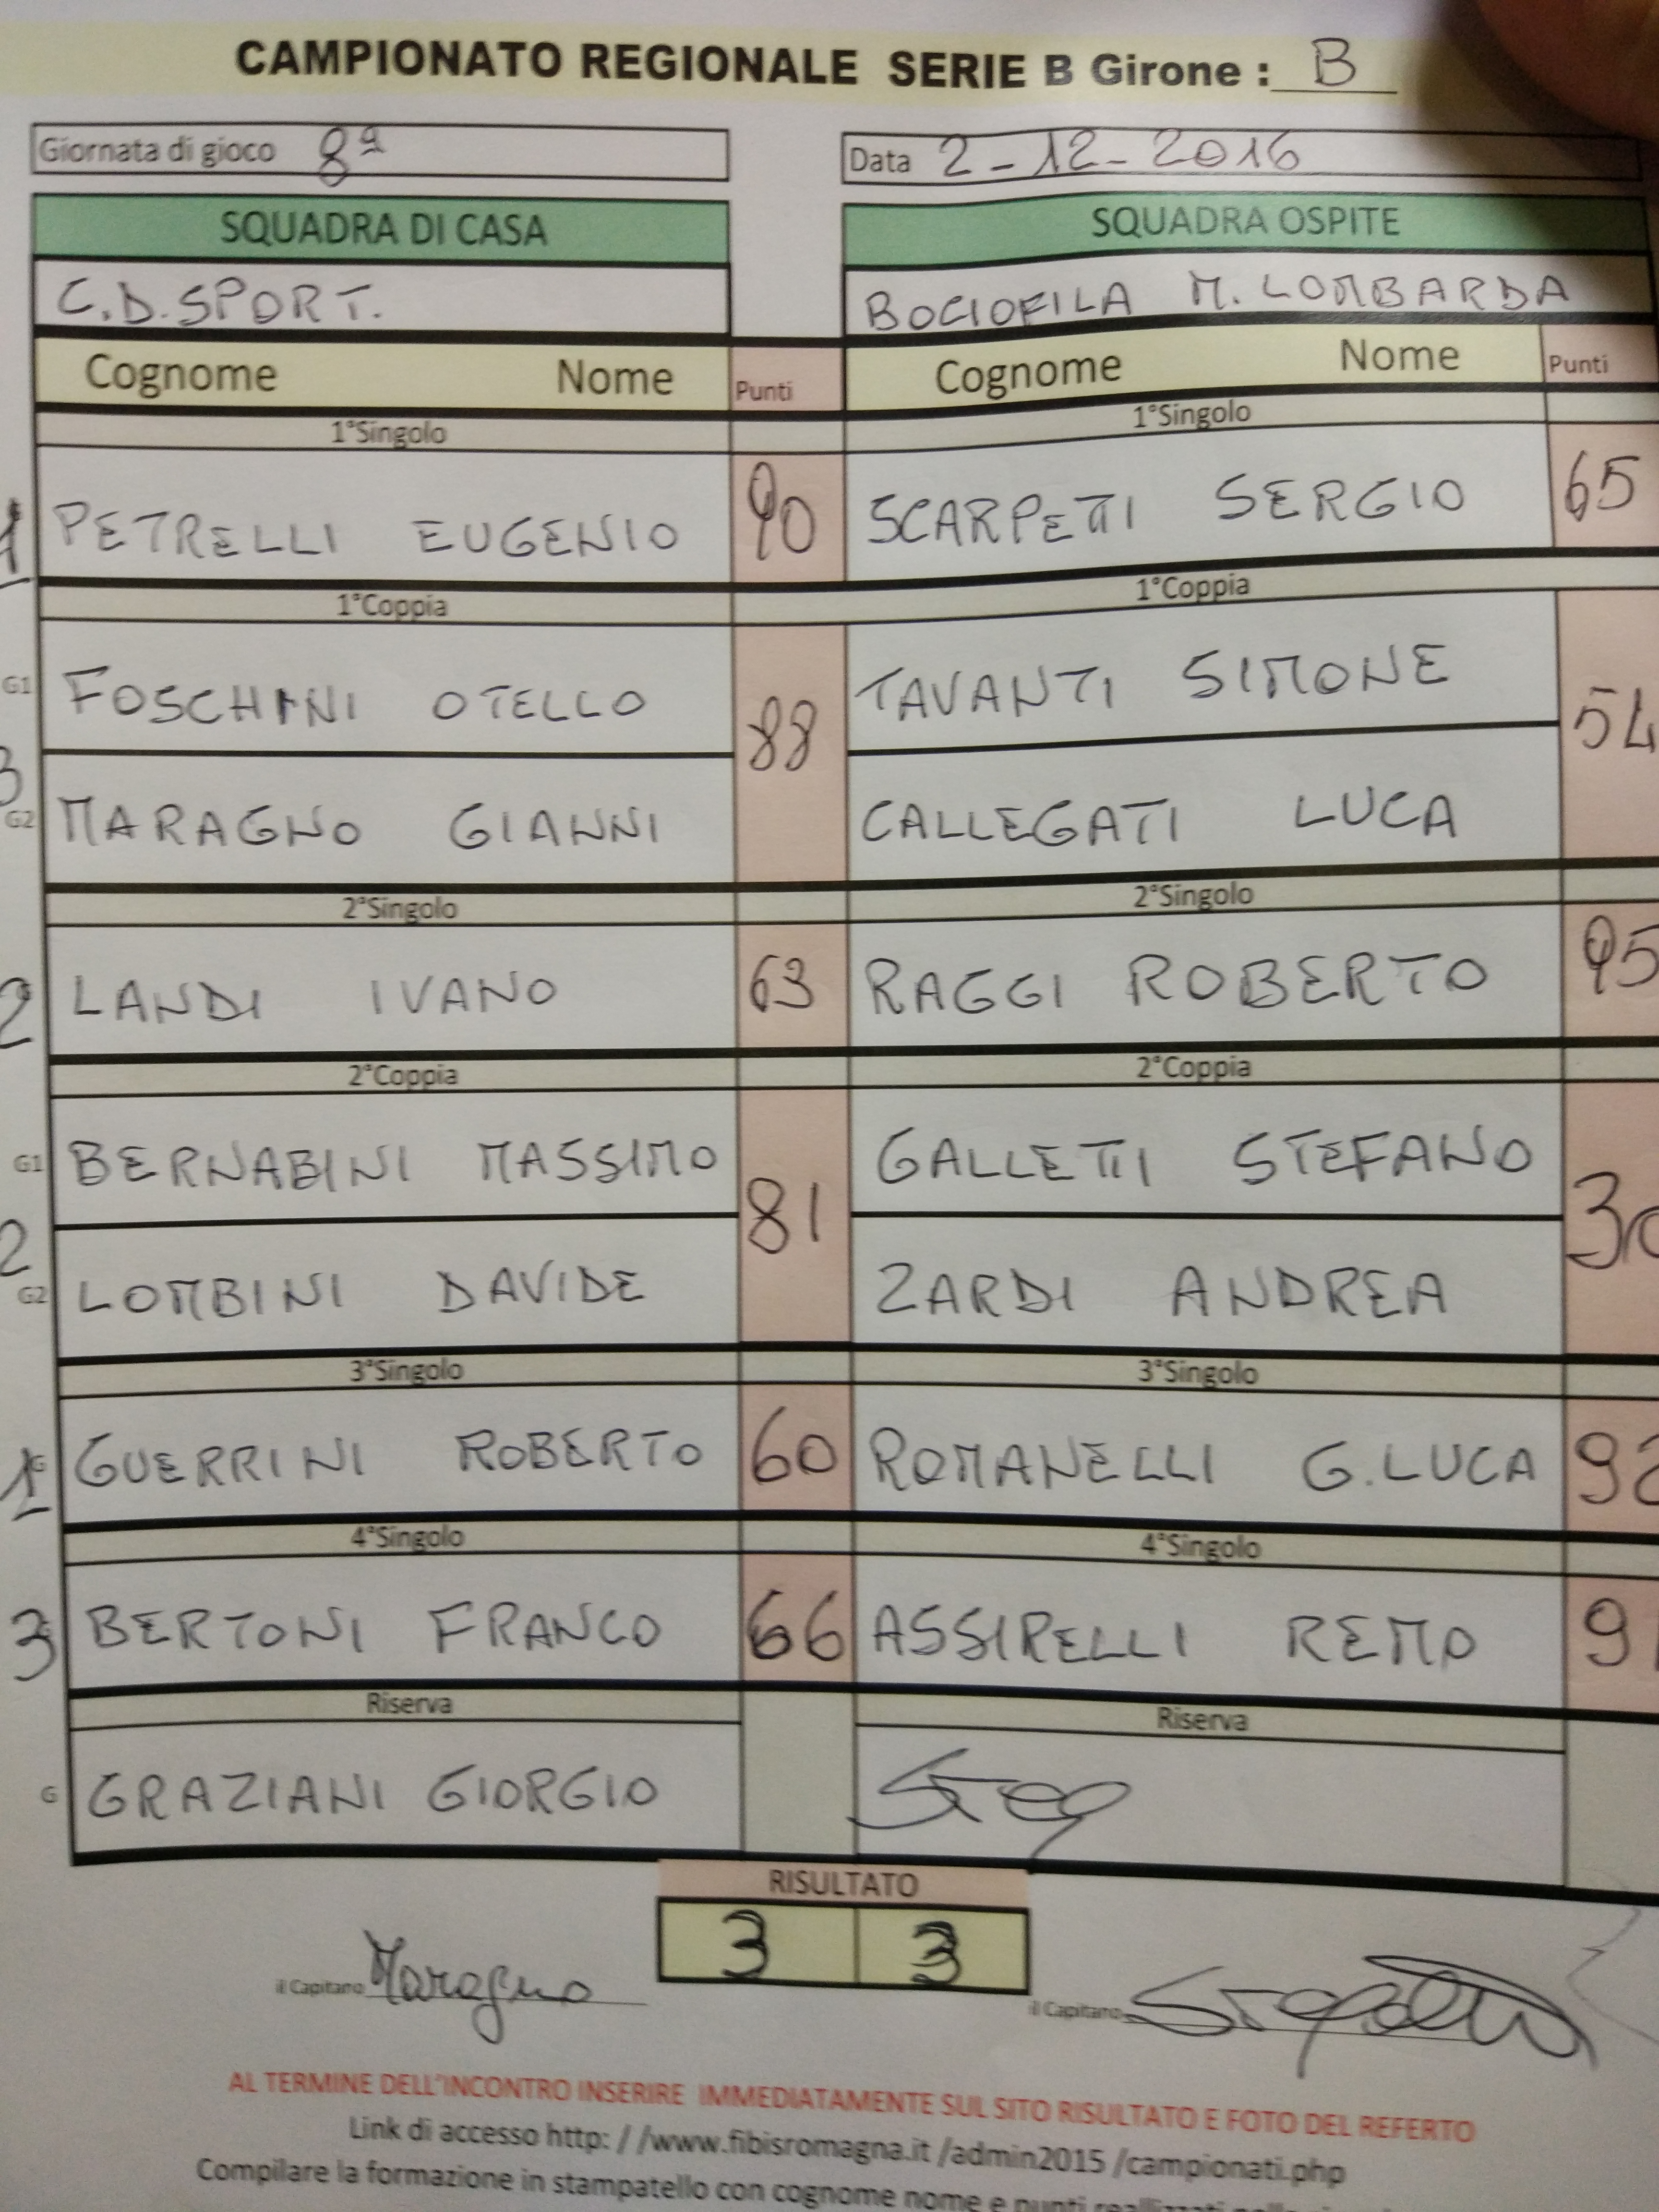 CAMPIONATO REGIONALE SERIE B Girone : B
Giornata di gioco 8ª
Data 2-12-2016
SQUADRA DI CASA
SQUADRA OSPITE
C.D.SPORT.
BOCIOFILA M. LOMBARDA
Cognome Nome Punti
Cognome Nome Punti
1°Singolo
1°Singolo
1 PETRELLI EUGENIO 90
SCARPETTI SERGIO 65
1°Coppia
1°Coppia
G1 FOSCHINI OTELLO
TAVANTI SIMONE
3 88
54
G2 MARAGNO GIANNI
CALLEGATI LUCA
2°Singolo
2°Singolo
2 LANDI IVANO 63
RAGGI ROBERTO 95
2°Coppia
2°Coppia
G1 BERNABINI MASSIMO
GALLETTI STEFANO
2 81
G2 LOMBINI DAVIDE
ZARDI ANDREA
3°Singolo
3°Singolo
1 G GUERRINI ROBERTO 60
ROMANELLI G.LUCA 92
4°Singolo
4°Singolo
3 BERTONI FRANCO 66
ASSIRELLI REMO 91
Riserva
Riserva
G GRAZIANI GIORGIO
RISULTATO
3 3
il Capitano Maragno
il Capitano
AL TERMINE DELL'INCONTRO INSERIRE IMMEDIATAMENTE SUL SITO RISULTATO E FOTO DEL REFERTO
Link di accesso http: / /www.fibisromagna.it /admin2015 /campionati.php
Compilare la formazione in stampatello con cognome nome e punti realizzati